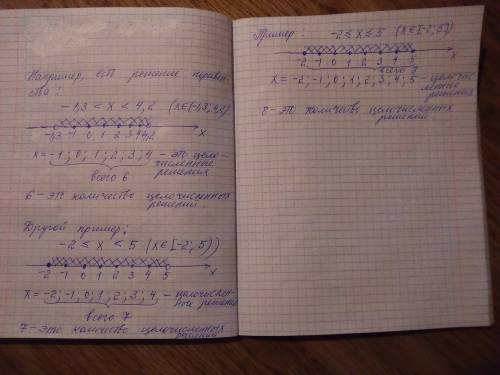 Например, есть решение неравен-
ства:
-1,3 ≤ x < 4,2 (x∈[-1,3; 4,2)
-1,3 -1 0 1 2 3 4 4,2 x
x = -1; 0; 1; 2; 3; 4 - это цело-
численные
решения
всего 6
6 - это количество целочисленных
решений.
Другой пример:
-2 ≤ x < 5 (x∈[-2; 5))
-2 -1 0 1 2 3 4 5 x
x = -2; -1; 0; 1; 2; 3; 4, - целочислен-
ные решения
всего 7
7 - это количество целочисленных
решений
Пример: -2 ≤ x ≤ 5 (x∈[-2; 5])
-2 -1 0 1 2 3 4 5 x
всего 8
x = -2, -1; 0; 1; 2; 3; 4; 5 - целочис
ленные
решения
8 - это количество целочисленных
решений